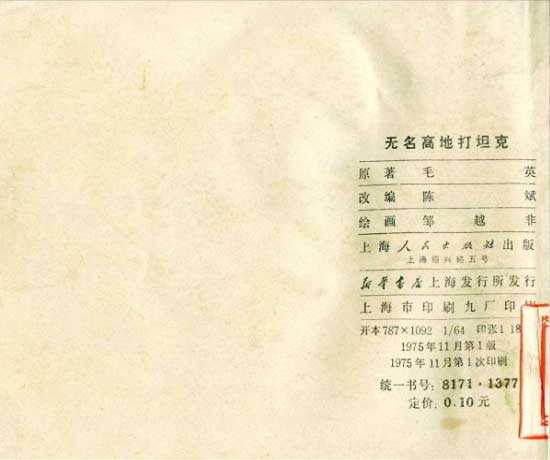 无名高地打坦克
原著 毛英
改编 陈斌
绘画 邹越非
上海人民出版社出版
上海绍兴路五号
新华书店上海发行所发行
上海市印刷九厂印刷
开本787×1092 1/64 印张1 18
1975年11月第1版
1975年11月第1次印刷
统一书号：8171·1377
定价：0.10元